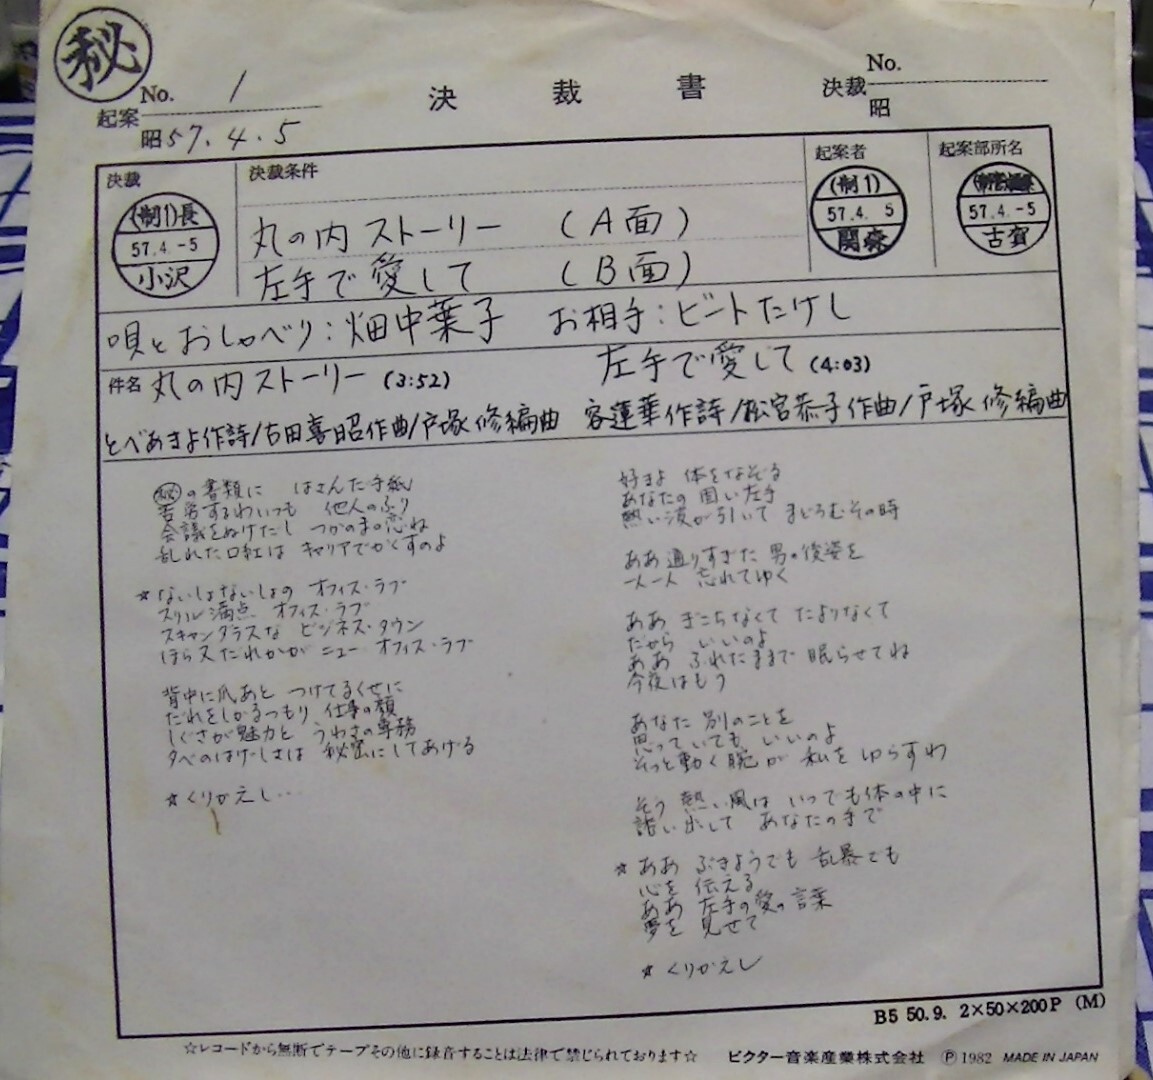 秘
No. 1
起案
昭57.4.5
決裁書
No.
決裁
昭
決裁
(制1)長
57.4.-5
小沢
決裁条件
丸の内ストーリー (A面)
左手で愛して (B面)
起案者
(制1)
57.4. 5
関森
起案部所名
57.4.-5
古賀
唄とおしゃべり:畑中葉子 お相手:ビートたけし
件名 丸の内ストーリー (3:52) 左手で愛して (4:03)
とべあきよ作詩/古田喜昭作曲/戸塚修編曲 容蓮華作詩/松宮恭子作曲/戸塚修編曲
㊙の書類に はさんだ手紙
苦労するわいつも 他人のふり
会議をぬけだし つかのまの恋ね
乱れた口紅は キャリアでかくすのよ
☆ないしょないしょの オフィス・ラブ
スリル満点 オフィス・ラブ
スキャンダラスな ビジネス・タウン
ほら又だれかが ニュー オフィス・ラブ
背中に爪あと つけてるくせに
だれをしかるつもり 仕事の顔
しぐさが魅力と うわさの専務
夕べのはげしさは 秘密にしてあげる
☆くりかえし…
好きよ 体をなぞる
あなたの 固い左手
熱い波が引いて まどろむその時
ああ通りすぎた 男の後姿を
一人一人 忘れてゆく
ああ ぎこちなくて たよりなくて
だから いいのよ
ああ ふれたままで 眠らせてね
今夜はもう
あなた 別のことを
思っていても いいのよ
そっと動く腕が 私をゆらすわ
そう 熱い風は いつでも体の中に
誘い出して あなたの手で
☆ああ ぶきようでも 乱暴でも
心を 伝える
ああ 左手の愛の言葉
夢を 見せて
☆くりかえし
B5 50.9. 2×50×200P (M)
☆レコードから無断でテープその他に録音することは法律で禁じられております☆ ビクター音楽産業株式会社 Ⓟ1982 MADE IN JAPAN